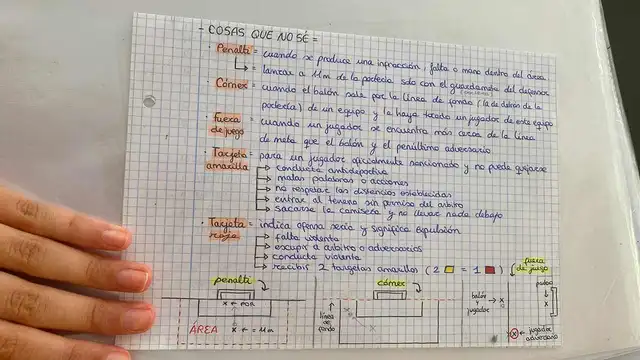 - COSAS QUE NO SÉ =
· Penalti = cuando se produce una infracción, falta o mano dentro del área
↳ = lanzar a 11m de la portería solo con el guardameta del defensor
· Córner = cuando el balón sale por la línea de fondo (la de detrás de la
portería) de un equipo y la haya tirado un jugador de este equipo
· Fuera de juego = cuando un jugador se encuentra más cerca de la línea
de meta que el balón y el penúltimo adversario
· Tarjeta amarilla = para un jugador oficialmente sancionado y no puede quejarse
→ conducta antideportiva
→ malas palabras o acciones
→ no respetar las distancias establecidas
→ entrar al terreno sin permiso del árbitro
→ sacarse la camiseta y no llevar nada debajo
Tarjeta roja = indica ofensa seria y significa expulsión
→ falta violenta
→ escupir a árbitro o adversarios
→ conducta violenta
→ recibir 2 tarjetas amarillas (2 = 1)
penalti
x ← POR
ÁREA
x ← = 11m
córner
línea de fondo
x
x
fuera de juego
portero
↓
x
balón y jugador → x
x ← jugador adversario